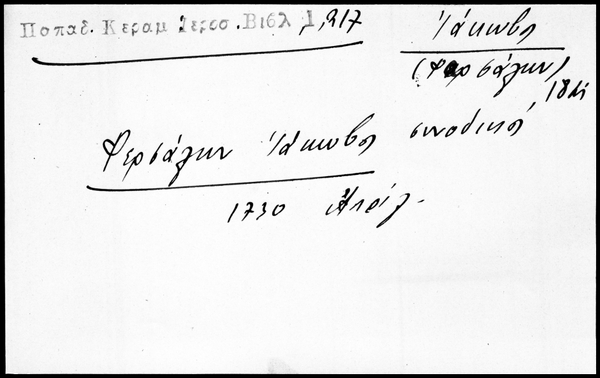 Παπαδ. Κεραμ Ιεροσ. Βιβλ 1, 217
Ἰάκωβος
(Φαρσάλων)
18ΑΙ
Φερσάλων Ἰάκωβος συνοδικός
1730 Ἀπρίλ.